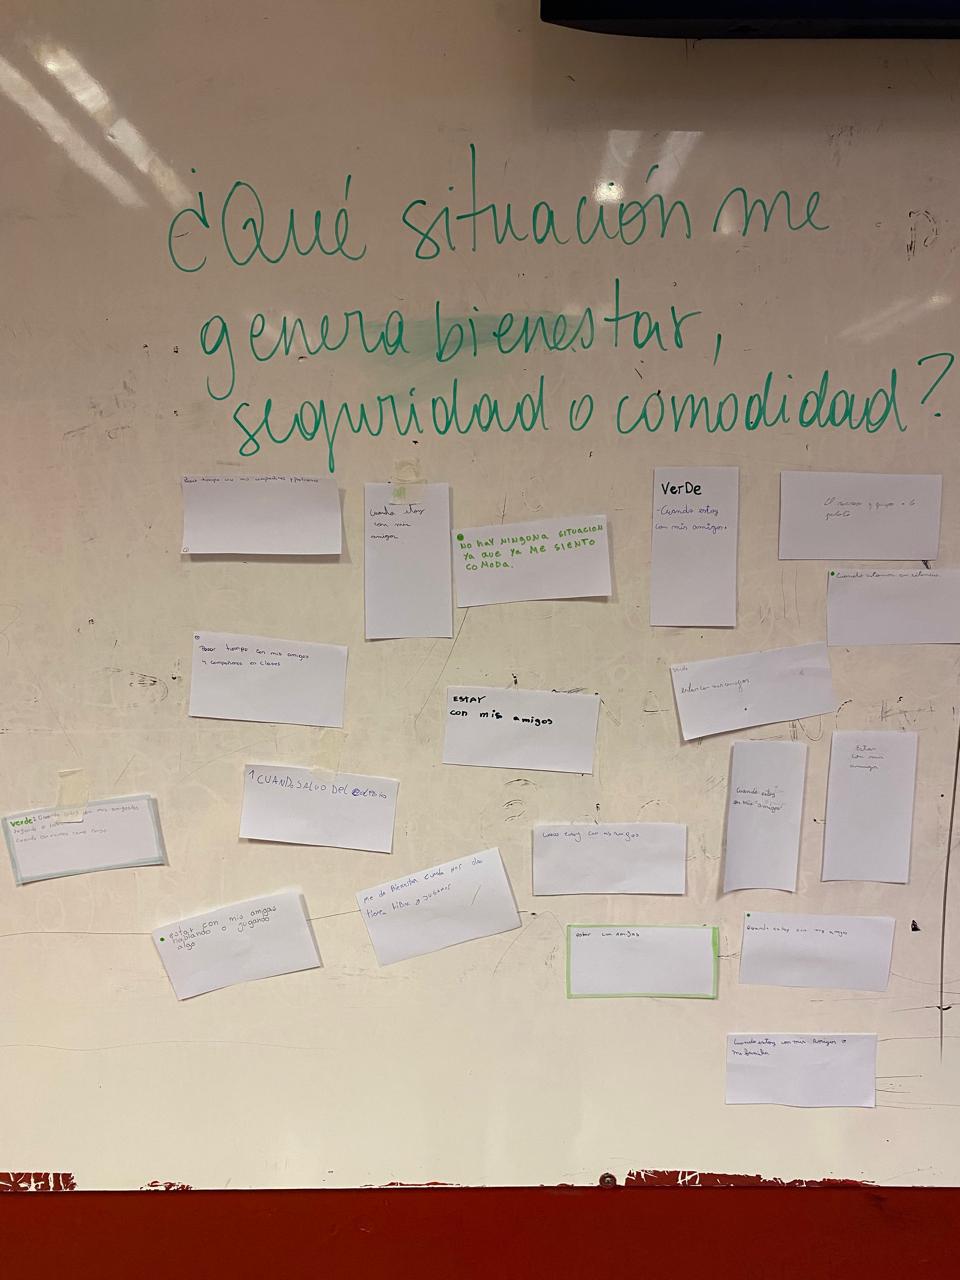 ¿Qué situación me
genera bienestar,
seguridad o comodidad?
Pasar tiempo con mis compañeros y profesores
Cuando estoy
con mis
amigos
NO HAY NINGUNA SITUACION
YA QUE YA ME SIENTO
COMODA.
VerDe
-Cuando estoy
con mis amigos.
El recreo y
Cuando estamos en silencio
Pasar tiempo con mis amigos
y compañeros en clases
ESTAR
con mis amigos
estar con mis amigos
1 CUANDO SALGO DEL
Cuando estoy
con mis amigos
Estar
con mis
amigos
verde: Cuando estoy con mis
jugando o
Cuando
estoy con mis amigos
me da Bienestar cuando nos dan
libre o jugamos
estar con mis amigas
hablando o jugando
algo
estar con amigas
Cuando estoy con mis amigos
Cuando estoy con mis amigos o
mi familia